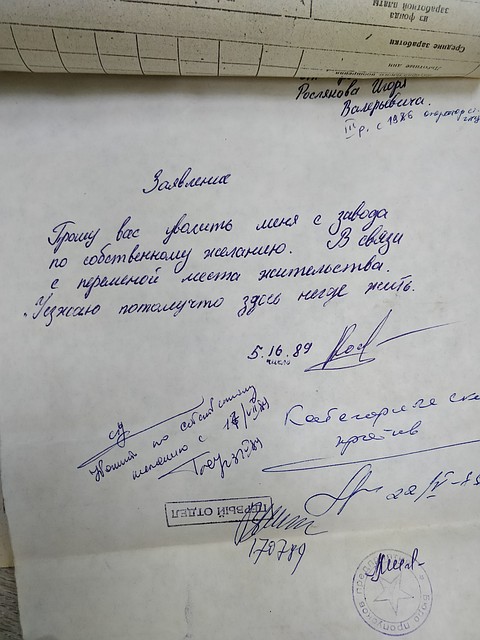 из фонда
заработной платы
Средние заработки
Рослякова Игоря
Валерьевича.
III р. с 1986 оператор
Заявление
Прошу вас уволить меня с завода
по собственному желанию. В связи
с переменой места жительства.
Уезжаю потомучто здесь негде жить.
5. 16. 89
число
Уволить по собственному
желанию с
Категорически
против
22/IV-89
ПЕРВЫЙ ОТДЕЛ
170789
Бюро пропусков